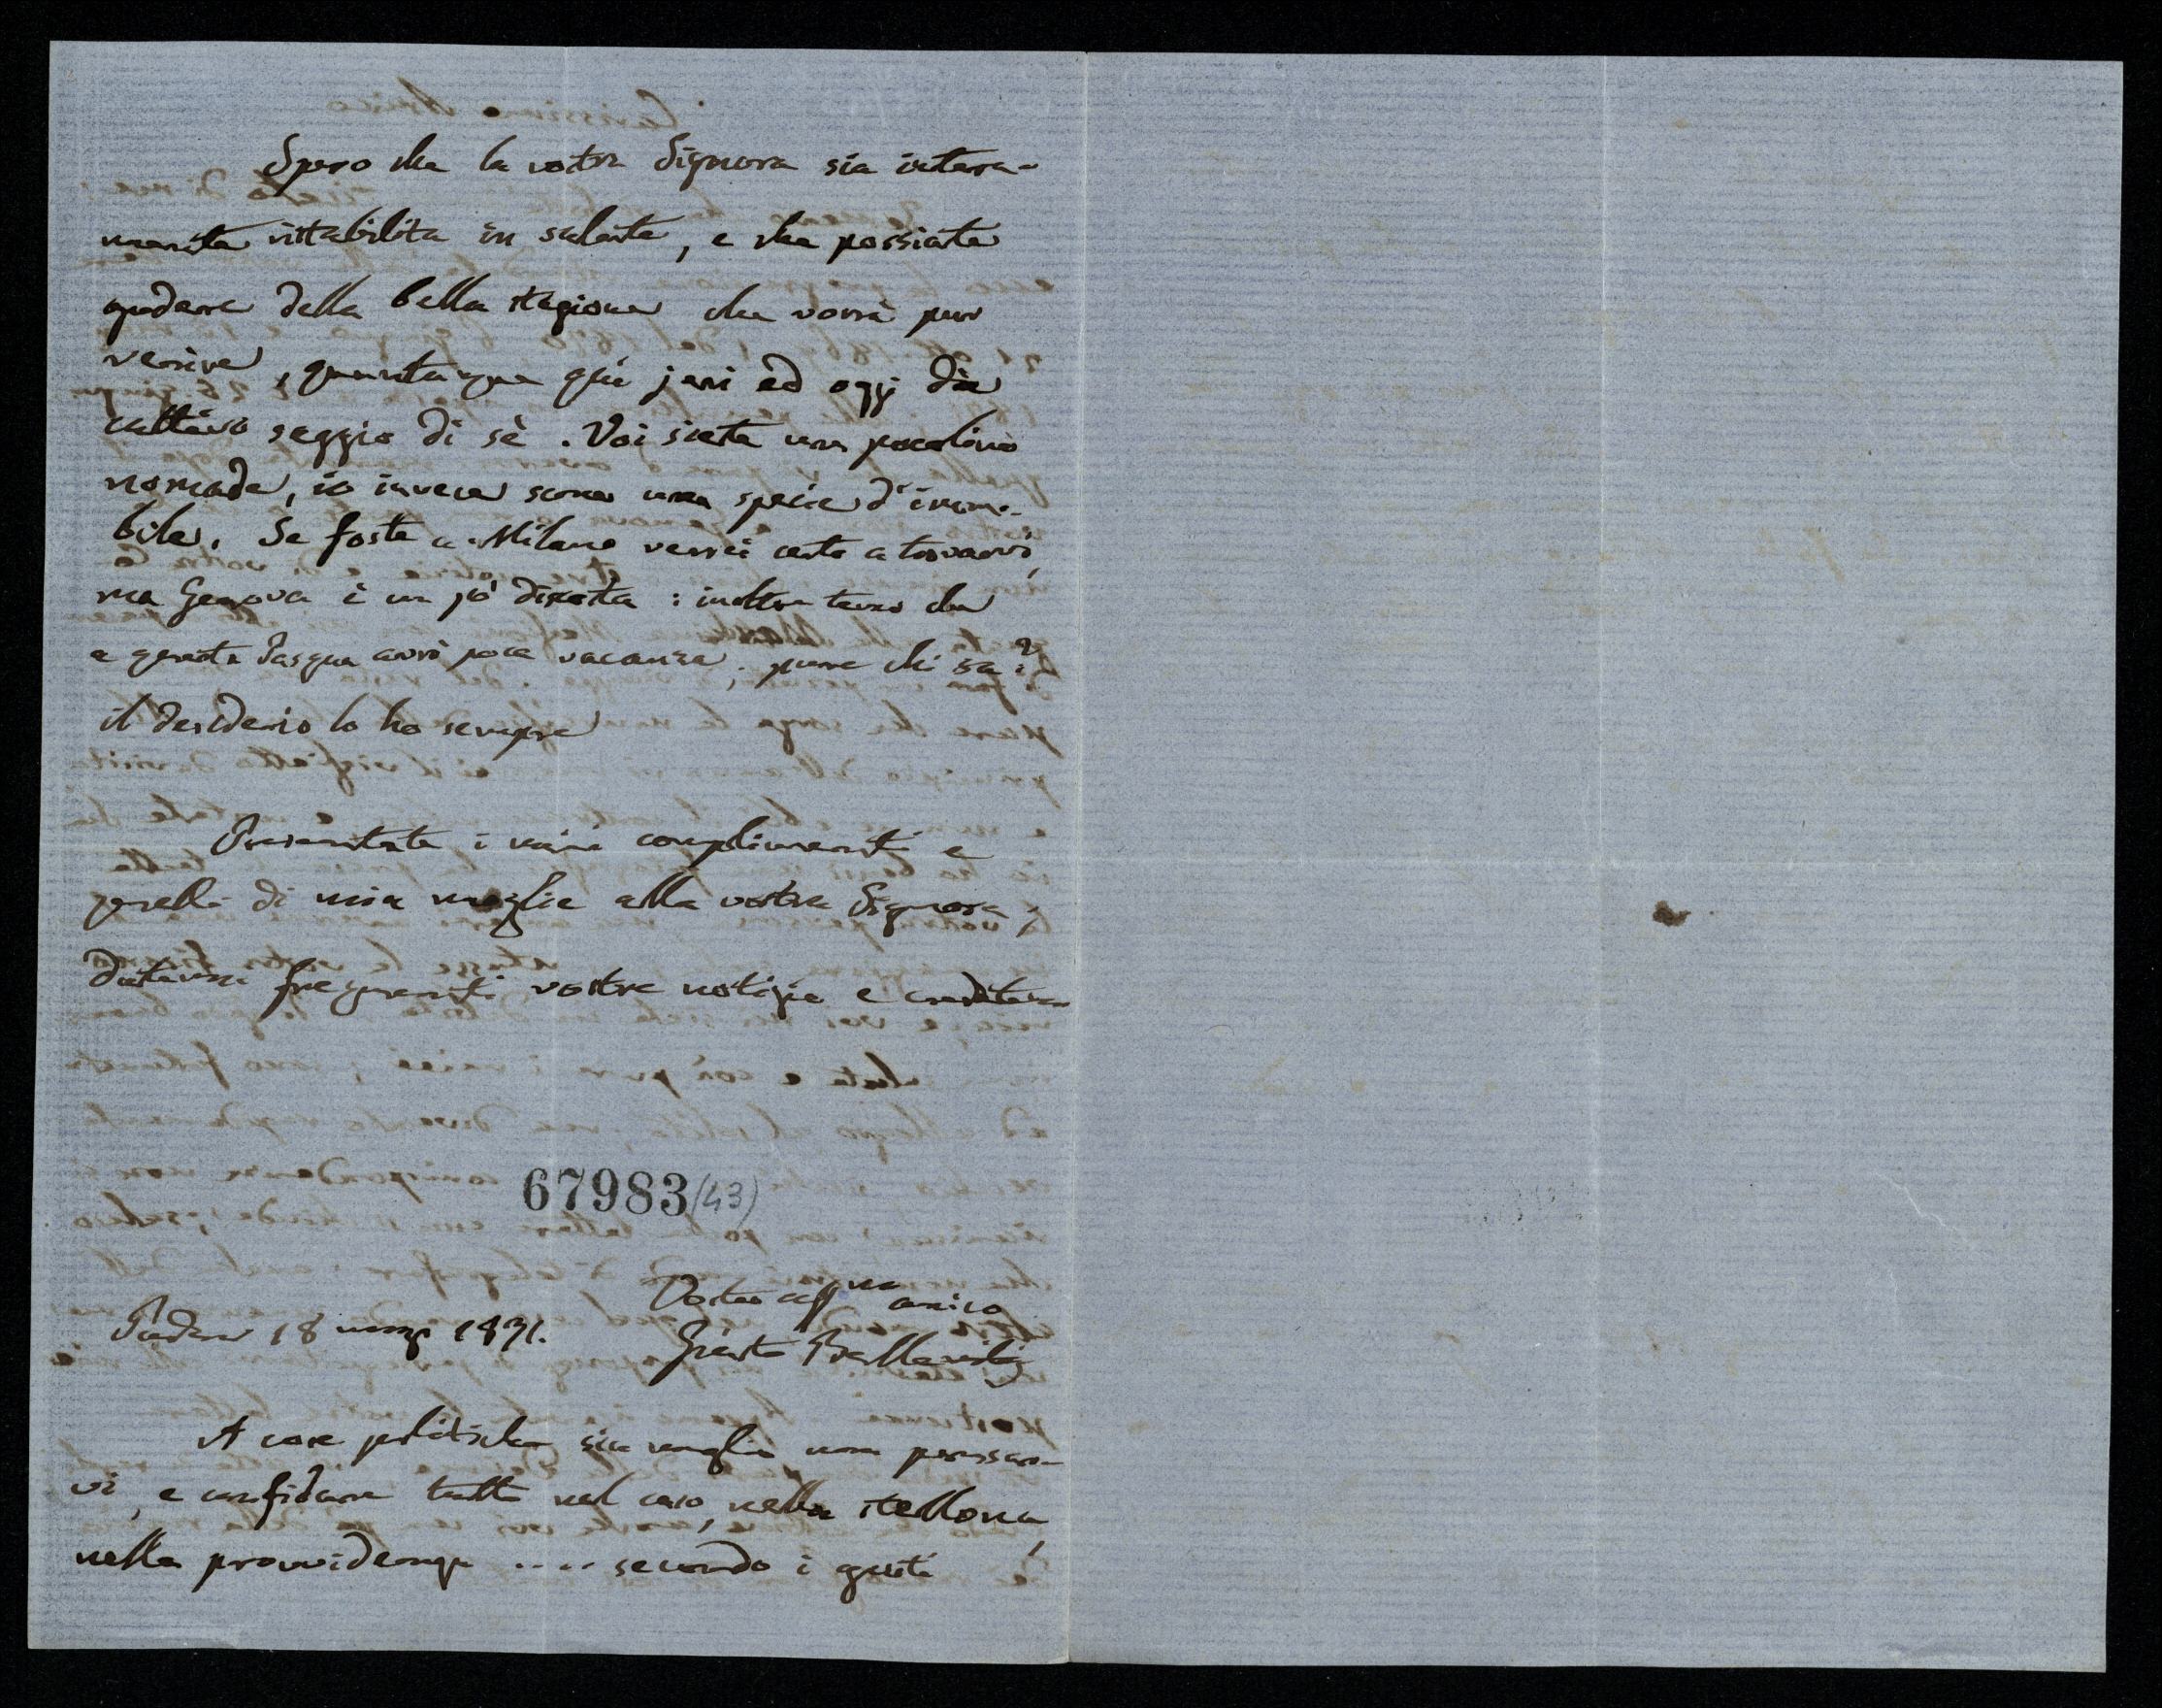 Spero che la vostra Signora sia intera-
mente ristabilita in salute, e che possiate
godere della bella stagione che vorrà pur
venire, quantunque qui jeri ed oggi dia
cattivo saggio di sè. Voi siete un pocolino
nomade, io invece sono una specie d'immo-
bile. Se foste a Milano verrei certo a trovarvi,
ma Genova è un pò discosta: inoltre temo che
a questa Pasqua avrò poca vacanza; pure chi sa?
il desiderio lo ho sempre
Presentate i miei complimenti e
quelli di mia moglie alla vostra Signora;
datemi frequenti vostre notizie e credetemi
67983 (43)
Vostro aff.mo amico
Padova 18 marzo 1871.
Giusto Bellavitis
A cose politiche sia meglio non pensar-
vi, e confidare tutto nel caso, nella stellona,
nella provvidenza .... secondo i gusti